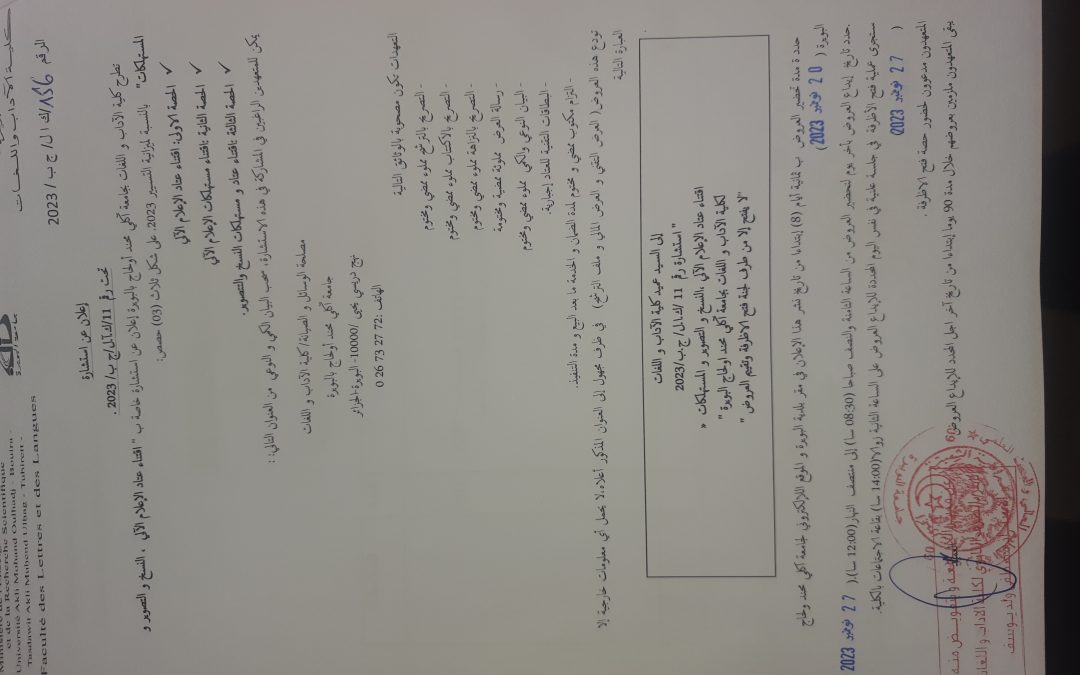 et de la Recherche Scientifique
Université Akli Mohand Oulhadj - Bouira -
Tasdawit Akli Muḥend Ulḥağ - Tubirett -
Faculté des Lettres et des Langues
كلية الآداب واللغات
الرقم 156/ك ا ل/ ج ب / 2023
إعلان عن استشارة
تحت رقم 11/ك.آ.ل/ج.ب/ 2023 .
تطرح كلية الآداب و اللغات بجامعة آكلي محند أولحاج بالبويرة إعلان عن استشارة خاصة ب " اقتناء عتاد الإعلام الآلي ، النسخ و التصوير و
المستهلكات" بالنسبة لميزانية التسيير 2023. على شكل ثلاث (03) حصص:
✓ الحصة الاولى: اقتناء عتاد الإعلام الآلي
✓ الحصة الثانية باقتناء مستهلكات الإعلام الآلي
✓ الحصة الثالثة باقتناء عتاد و مستهلكات النسخ والتصوير.
يمكن للمتعهدين الراغبين في المشاركة في هذه الاستشارة، سحب البيان الكمي و النوعي من العنوان التالي: :
مصلحة الوسائل و الصيانة/ كلية الآداب و اللغات
جامعة آكلي محند أولحاج بالبويرة
نهج دريسي يحيى /10000- البويرة-الجزائر
الهاتف :72 27 73 26 0
التعهدات تكون مصحوبة بالوثائق التالية
- التصريح بالترشح مملوء ممضي ومختوم
- التصريح بالاكتتاب مملوء ممضي ومختوم
- التصريح بالنزاهة مملوء ممضي ومختوم
- رسالة العرض مملوئة ممضية ومختومة
- البيان النوعي والكمي مملوء ممضي ومختوم
- البطاقات التقنية للعتاد إجبارية.
- التزام مكتوب ممضي و مختوم لمدة الضمان و الخدمة ما بعد البيع و مدة التنفيذ.
تودع هذه العروض( العرض التقني و العرض المالي و ملف الترشح) في ظرف مجهول إلى العنوان المذكور أعلاه،لا يحمل أي معلومات خارجية إلا
العبارة التالية
إلى السيد عميد كلية الآداب و اللغات
" استشارة رقم 11 /ك.ا.ل/ ج.ب/2023
اقتناء عتاد الإعلام الآلي ،النسخ و التصوير و المستهلكات »
لكلية الآداب و اللغات بجامعة آكلي محند اولحاج البويرة "
"لا يفتح إلا من طرف لجنة فتح الاظرفة وتقييم العروض "
حددة مدة تحضير العروض ب ثمانية أيام (8) إبتداءا من تاريخ نشر هذا الإعلان في مقر بلدية البويرة و الموقع الالكتروني لجامعة آكلي محند ولحاج
البويرة ( 20 نوفمبر 2023 )
.حدد تاريخ إيداع العروض بآخر يوم لتحضير العروض من الساعة الثامنة والنصف صباحا (08:30 سا) إلى منتصف النهار(12:00 سا)،( 27 نوفمبر 2023
ستجرى عملية فتح الأظرفة في جلسة علنية في نفس اليوم المحددة للإيداع العروض على الساعة الثانية زوالا(14:00 سا) بقاعة الاجتماعات بالكلية.
( 27 نوفمبر 2023)
المتعهدون مدعوون لحضور حصة فتح الاظرفة.
يبقى المتعهدون ملزمين بعروضهم خلال مدة 90 يوما إبتداءا من تاريخ آخر اجل المحدد للإيداع العروض